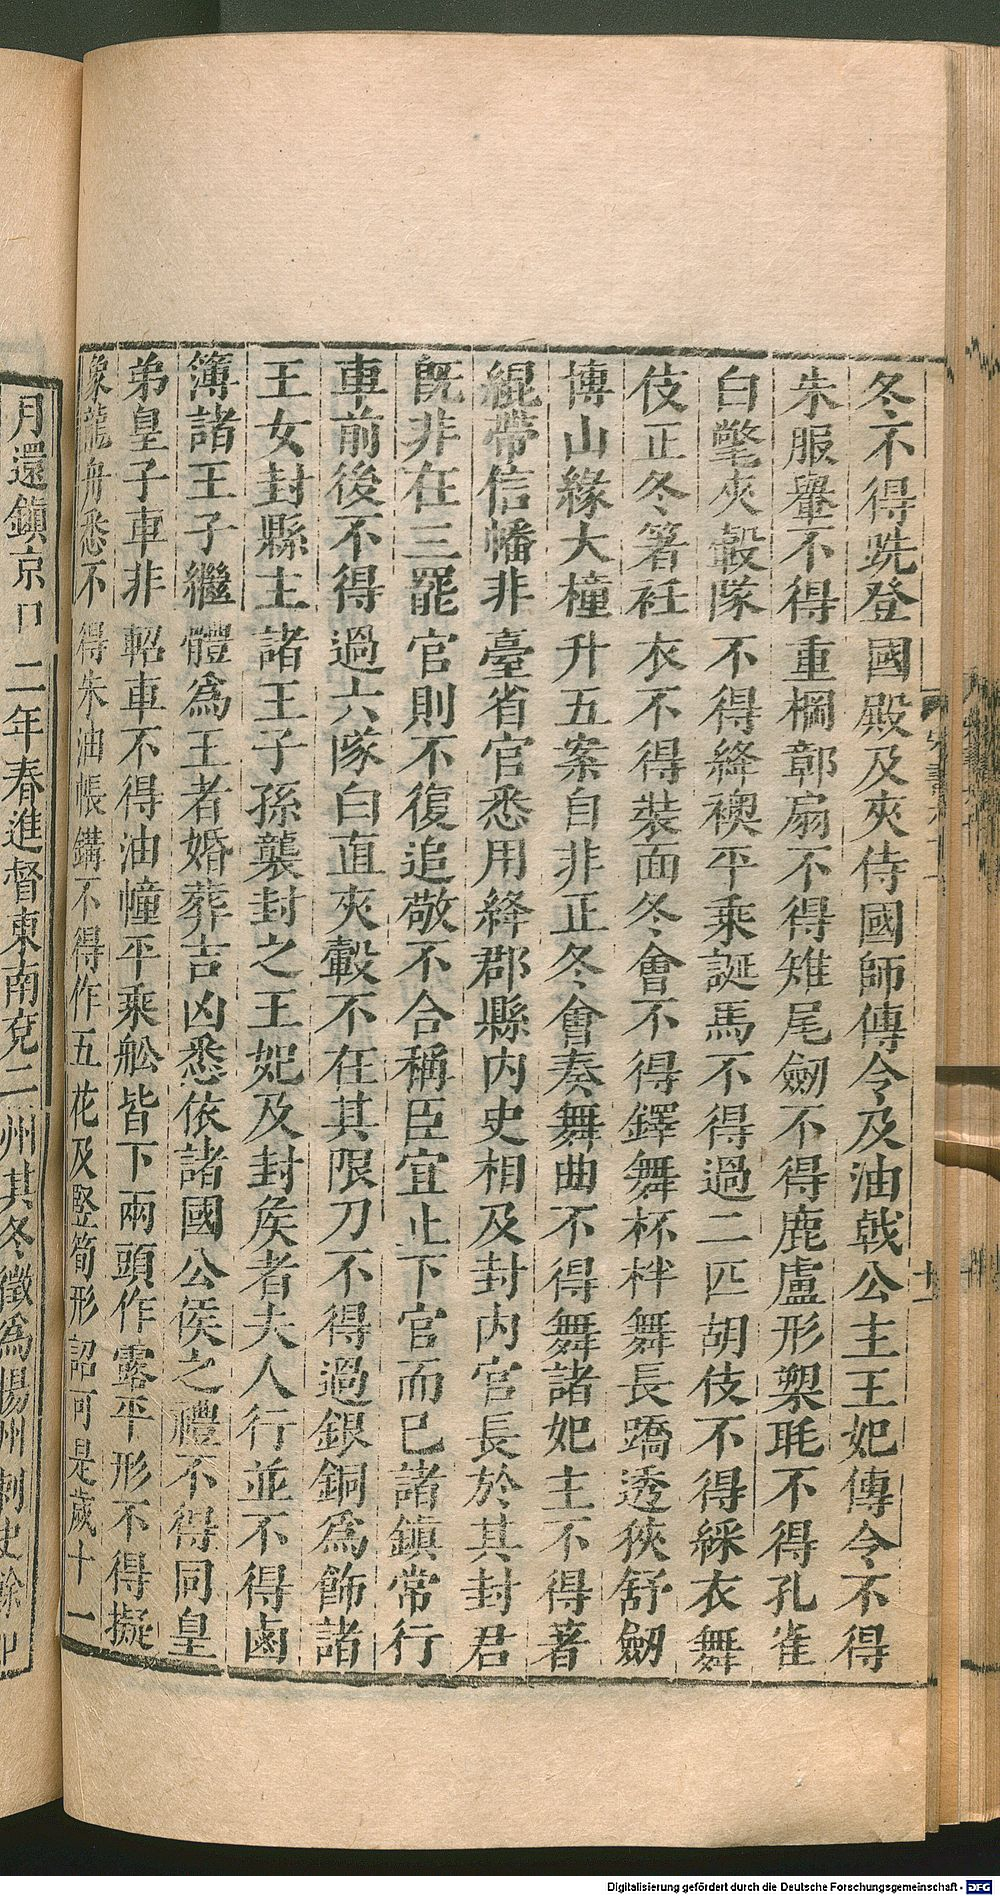 冬不得跣登國殿及夾侍國師傳令及油戟公主王妃傳令不得
朱服轝不得重棡鄣扇不得雉尾劒不得鹿盧形槊毦不得孔雀
白氅夾轂隊不得絳襖平乘誕馬不得過二匹胡伎不得綵衣舞
伎正冬箸袿衣不得裝面冬會不得鐸舞杯柈舞長蹻透狹舒劒
博山緣大橦升五案自非正冬會奏舞曲不得舞諸妃主不得著
緄帶信幡非臺省官悉用絳郡縣內史相及封內官長於其封君
旣非在三罷官則不復追敬不合稱臣宜止下官而已諸鎮常行
車前後不得過六隊白直夾轂不在其限刀不得過銀銅爲飾諸
王女封縣主諸王子孫襲封之王妃及封矦者夫人行並不得鹵
簿諸王子繼體爲王者婚葬吉凶悉依諸國公侯之禮不得同皇
弟皇子車非軺車不得油幢平乘舩皆下兩頭作露平形不得擬
像龍舟悉不得朱油帳鐥不得作五花及竪筍形詔可是歲十一
月還鎭京口二年春進督東南兗二州其冬徵爲揚州刺史餘如
十一
Digitalisierung gefördert durch die Deutsche Forschungsgemeinschaft - DFG